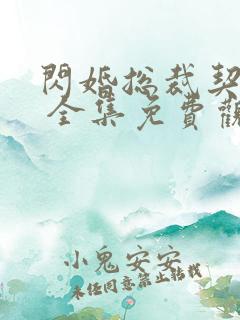 閃婚总裁契
全集免費觀
小鬼安安
未经同意禁止转载